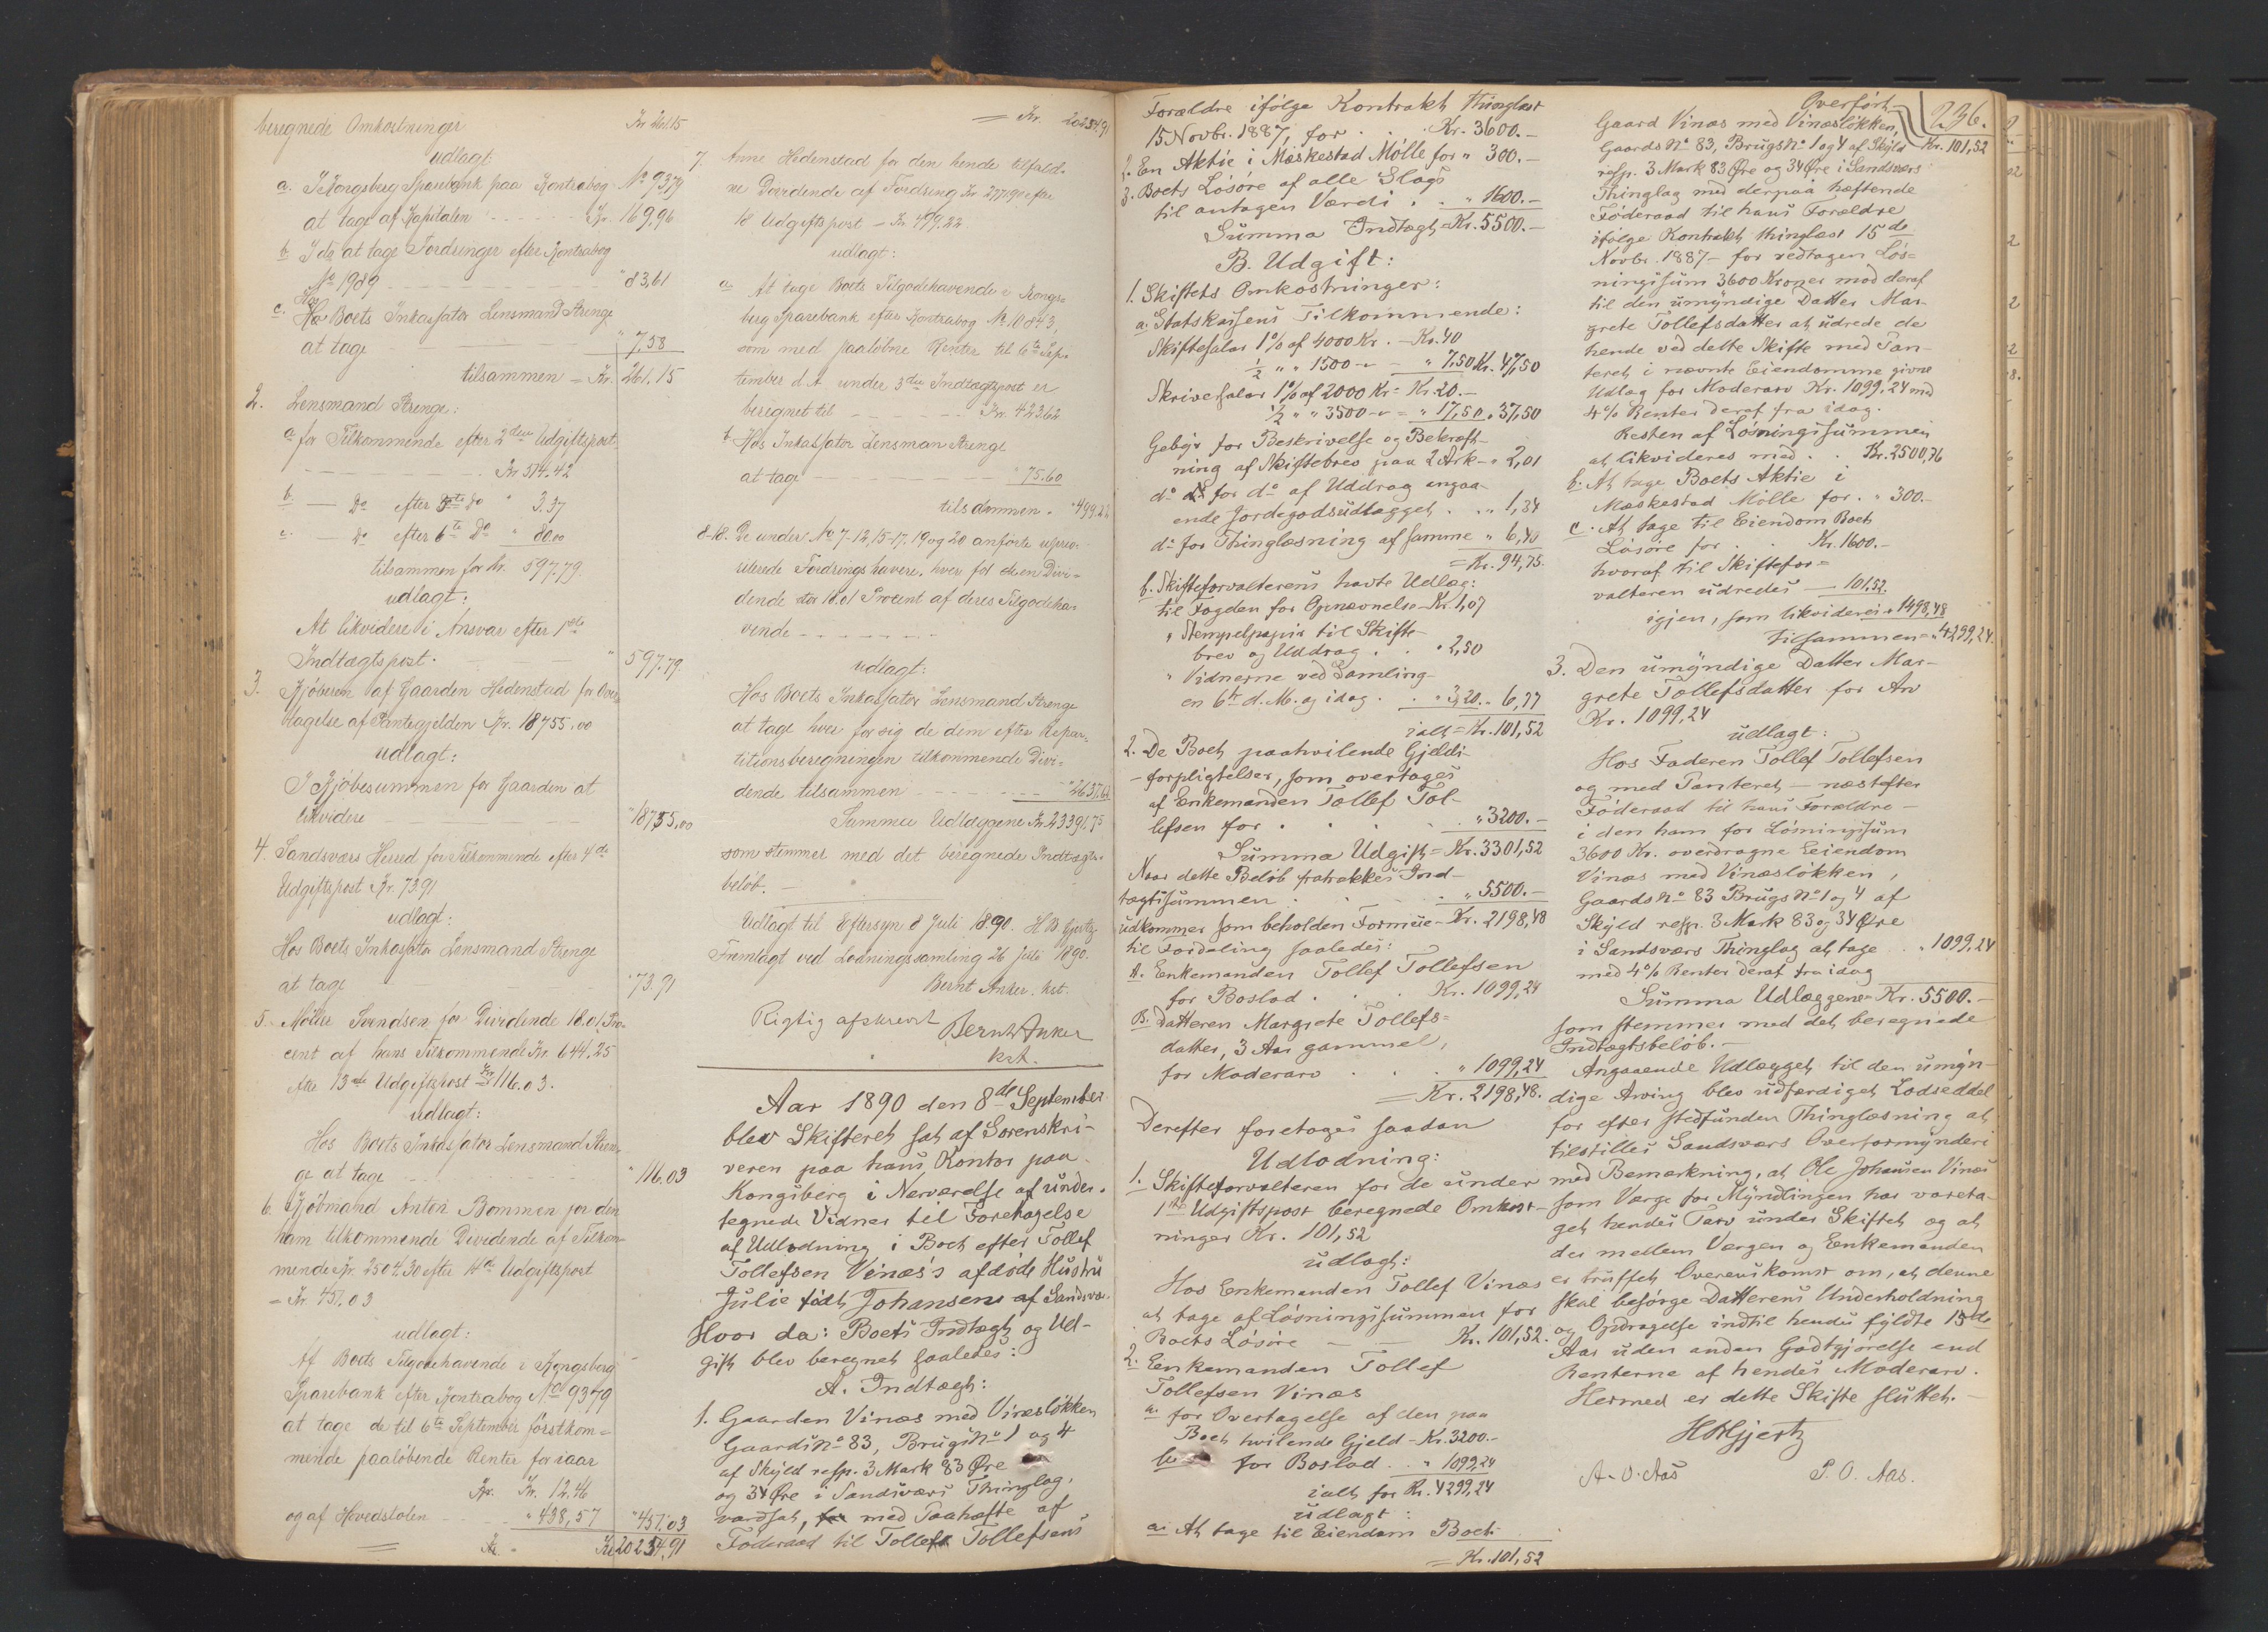 beregnede Omkostninger Kr 261.15
udlagt
a. I Kongsberg Sparebank paa Kontrabog No 9379
at tage af Kapitalen - - - - - Kr. 169.96
b. I do at tage Fordringer efter Kontrabog
No 1989 - - - - - - - - - " 83,61
c. Hos Boets Inkassator Lensmand Strenge
at tage - - - - " 7,58
tilsammen = Kr. 261.15
2. Lensmand Strenge:
a for Tilkommende efter 2den Udgiftspost
- - - - - - - - - Kr 514.42
b. — Do efter 5te Do " 3.37
c. — Do efter 6te Do " 80.00
tilsammen for Kr. 597.79.
udlagt:
At likvidere i Ansvar efter 1ste
Indtægtspost. — — " 597.79.
3. Kjøberen af Gaarden Hedenstad for Over-
tagelse af Pantegjelden Kr. 18755.00
udlagt:
I Kjøbesummen for Gaarden at
likvidere — — — — "18755,00
4. Sandsværs Herred for Tilkommende efter 4de
Udgiftspost Kr. 73.91
udlagt:
Hos Boets Inkassator Lensmand Strenge
at tage — — — — "73.91
5. Møller Svendsen for Dividende 18.01 Pro-
cent af hans Tilkommende Kr. 644,25
efter 13de Udgiftspost Kr 116.03.
udlagt:
Hos Boets Inkassator Lensmand Stren-
ge at tage - - - - - - " 116.03
6. Kjøbmand Anton Bommen for den
ham tilkommende Dividende af Tilkom-
mende Kr. 2504.30 efter 14de Udgiftspost
= Kr 451.03
udlagt:
Af Boets Tilgodehavende i Kongsberg
Sparebank efter Kontrabog No 9379
at tage de til 6te September førstkom=
mende paaløbende Renter for iaar
Kr. 12.46
og af Hovedstolen - - - " 438,57 "451.03
= Kr 20234,91
= Kr. 20234,91
7. Anne Hedenstad for den hende tilfald-
ne Dividende af Fordring Kr 2771.90 efter
18 Udgiftspost = Kr 499.22
udlagt:
a. At tage Boets Tilgodehavende i Kongs=
berg Sparebank efter Kontrabog No 10843,
som med paaløbne Renter til 6te Sep-
tember d. A under 3die Indtægtspost er
beregnet til - - - - - Kr. 423.62
b. Hos Inkassator Lensman Strenge
at tage - - - - - - - " 75.60
tilsammen = "499.22
8-18. De under No 7-12, 15-17. 19 og 20 anførte uprivi-
ligerede Fordringshavere, hver for deres Divi-
dende stor 18.01 Procent af deres Tilgodeha-
vende - - - - - - -
udlagt:
Hos Boets Inkassator Lensmand Strenge
at tage hver for sig de dem efter Repar-
titionsberegningen tilkommende Divi-
dende tilsammen - - - - - - - "2657.62
Summa Udlæggene Kr. 23391.75
som stemmer med det beregnede Indtægts-
beløb. —
Udlagt til Eftersyn 8 Juli 1890. H B Gjertz
Fremlagt ved Lodningssamling 26 Juli 1890.
Bernt Anker. kst.
Rigtig afskrevet
Bernt Anker
kst.
Aar 1890 den 8de September
blev Skifteret sat af Sorenskri-
veren paa hans Kontor paa
Kongsberg i Nærværelse af under-
tegnede Vidner til Foretagelse
af Udlodning i Boet efter Tollef
Tollefsen Vinæs's afdøde Hustru
Julie født Johansens af Sandsvær.
Hvor da: Boets Indtægt og Ud-
gift blev beregnet saaledes:
A. Indtægt:
1. Gaarden Vinæs med Vinæsløkken
Gaards No 83, Brugs No 1 og 4
af Skyld resp. 3 Mark 83 Øre
og 34 Øre i Sandsværs Thinglag,
værdsat, med Paahæfte af
Føderaad til Tollef Tollefsens
Forældre ifølge Kontrakt thinglæst
15 Novbr. 1887, for . . . Kr. 3600.—
2. En Aktie i Mæskestad Mølle for " 300.—
3. Boets Løsøre af alle Slags
til antagen Værdi . . . " 1600.—
Summa Indtægt = Kr. 5500.—
B. Udgift:
1. Skiftets Omkostninger:
a. Statskassens Tilkommende:
Skiftesalær 1% af 4000 Kr. = Kr. 40
½ " " 1500 — = " 7,50 Kr. 47,50
Skrivesalær 1% af 2000 Kr = Kr. 20.—
½ " " 3500 — = " 17,50 " 37,50
Gebyr for Beskrivelse og Bekræft-
ning af Skiftebrev paa 2 Ark — " 2,01
do for do af Uddrag angaa-
ende Jordegodsudlægget . . " 1,34
do for Thinglæsning af samme " 6,40
= Kr. 94,75.
b. Skifteforvalterens havte Udlæg:
til Fogden for Opnævnelse Kr. 1,07
" Stempelpapir til Skifte-
brev og Uddrag . . " 2,50
" Vidnerne ved Samling-
en 6te d. M. og idag . . " 3,20 " 6,77
ialt = Kr. 101,52
2. De Boet paahvilende Gjelds-
forpligtelser, som overtages
af Enkemanden Tollef Tol-
lefsen for . . . . " 3200.—
Summa Udgift = Kr. 3301,52
Naar dette Beløb fratrækkes Ind-
tægtssummen . . . . " 5500.—
udkommer som beholden Formue — Kr. 2198,48
til Fordeling saaledes:
A. Enkemanden Tollef Tollefsen
for Boslod . . . Kr. 1099,24
B. Datteren Margrete Tollefs=
datter, 3 Aar gammel,
for Moderarv . . . " 1099,24
= Kr. 2198,48.
Derefter foretoges saadan
Udlodning:
1. Skifteforvalteren for de under
1ste Udgiftspost beregnede Omkost-
ninger Kr. 101,52
udlagt:
Hos Enkemanden Tollef Vinæs
at tage af Løsningssummen for
Boets Løsøre — — Kr. 101,52.
2. Enkemanden Tollef
Tollefsen Vinæs
a. for Overtagelse af den paa
Boet hvilende Gjeld — Kr. 3200.—
b. for Boslod . . " 1099,24
ialt for Kr. 4299,24
udlagt:
a. At tage til Eiendom Boets
= Kr. 101,52
Overført
236.
Kr. 101,52
Gaard Vinæs med Vinæsløkken,
Gaards No 83, Brugs No 1 og 4 af Skyld
resp. 3 Mark 83 Øre og 34 Øre i Sandsværs
Thinglag med derpaa hæftende
Føderaad til hans Forældre
ifølge Kontrakt thinglæst 15de
Novbr. 1887 — for vedtagen Løs=
ningssum 3600 Kroner mod deraf
til den umyndige Datter Mar-
grete Tollefsdatter at udrede de
hende ved dette Skifte med Pan-
teret i nævnte Eiendomme givne
Udlæg for Moderarv Kr. 1099,24 med
4% Renter deraf fra idag.
Resten af Løsningssummen
at likvideres med . . Kr. 2500,76
b. At tage Boets Aktie i
Mæskestad Mølle for . " 300.—
c. At tage til Eiendom Boets
Løsøre for . . Kr. 1600.—
hvoraf til Skiftefor=
valteren udredes — 101,52.
igjen, som likvideres " 1498,48
Tilsammen = " 4299,24.
3. Den umyndige Datter Mar-
grete Tollefsdatter for Arv
Kr. 1099,24
udlagt:
Hos Faderen Tollef Tollefsen
og med Panteret — næstefter
Føderaad til hans Forældre —
i den ham for Løsningssum
3600 Kr. overdragne Eiendom
Vinæs med Vinæsløkken,
Gaards No 83 Brugs No 1 og 4 af
Skyld resp. 3 Mark 83 og 34 Øre
i Sandsværs Thinglag at tage . . " 1099,24
med 4% Renter deraf fra idag
Summa Udlæggene Kr. 5500.—
som stemmer med det beregnede
Indtægtsbeløb. —
Angaaende Udlægget til den umyn-
dige Arving blev udfærdiget Lodseddel
for efter stedfunden Thinglæsning at
tilstilles Sandsværs Overformynderi
med Bemærkning, at Ole Johansen Vinæs
som Værge for Myndlingen har vareta-
get hendes Tarv under Skiftet og at
der mellem Værgen og Enkemanden
er truffet Overenskomst om, at denne
skal besørge Datterens Underholdning
og Opdragelse indtil hendes fyldte 15de
Aar uden anden Godtgjørelse end
Renterne af hendes Moderarv.
Hermed er dette Skifte sluttet. —
HBGjertz
A. O. Aas P. O. Aas.